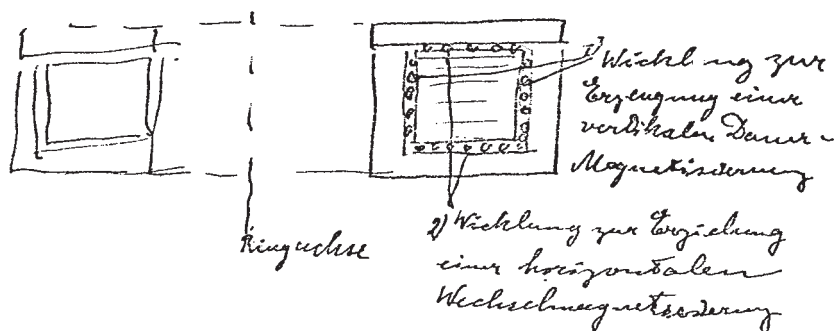 1) Wicklung zur
Erzeugung einer
vertikalen Dauer-
Magnetisierung
Ringachse
2) Wicklung zur Erzielung
einer horizontalen
Wechselmagnetisierung